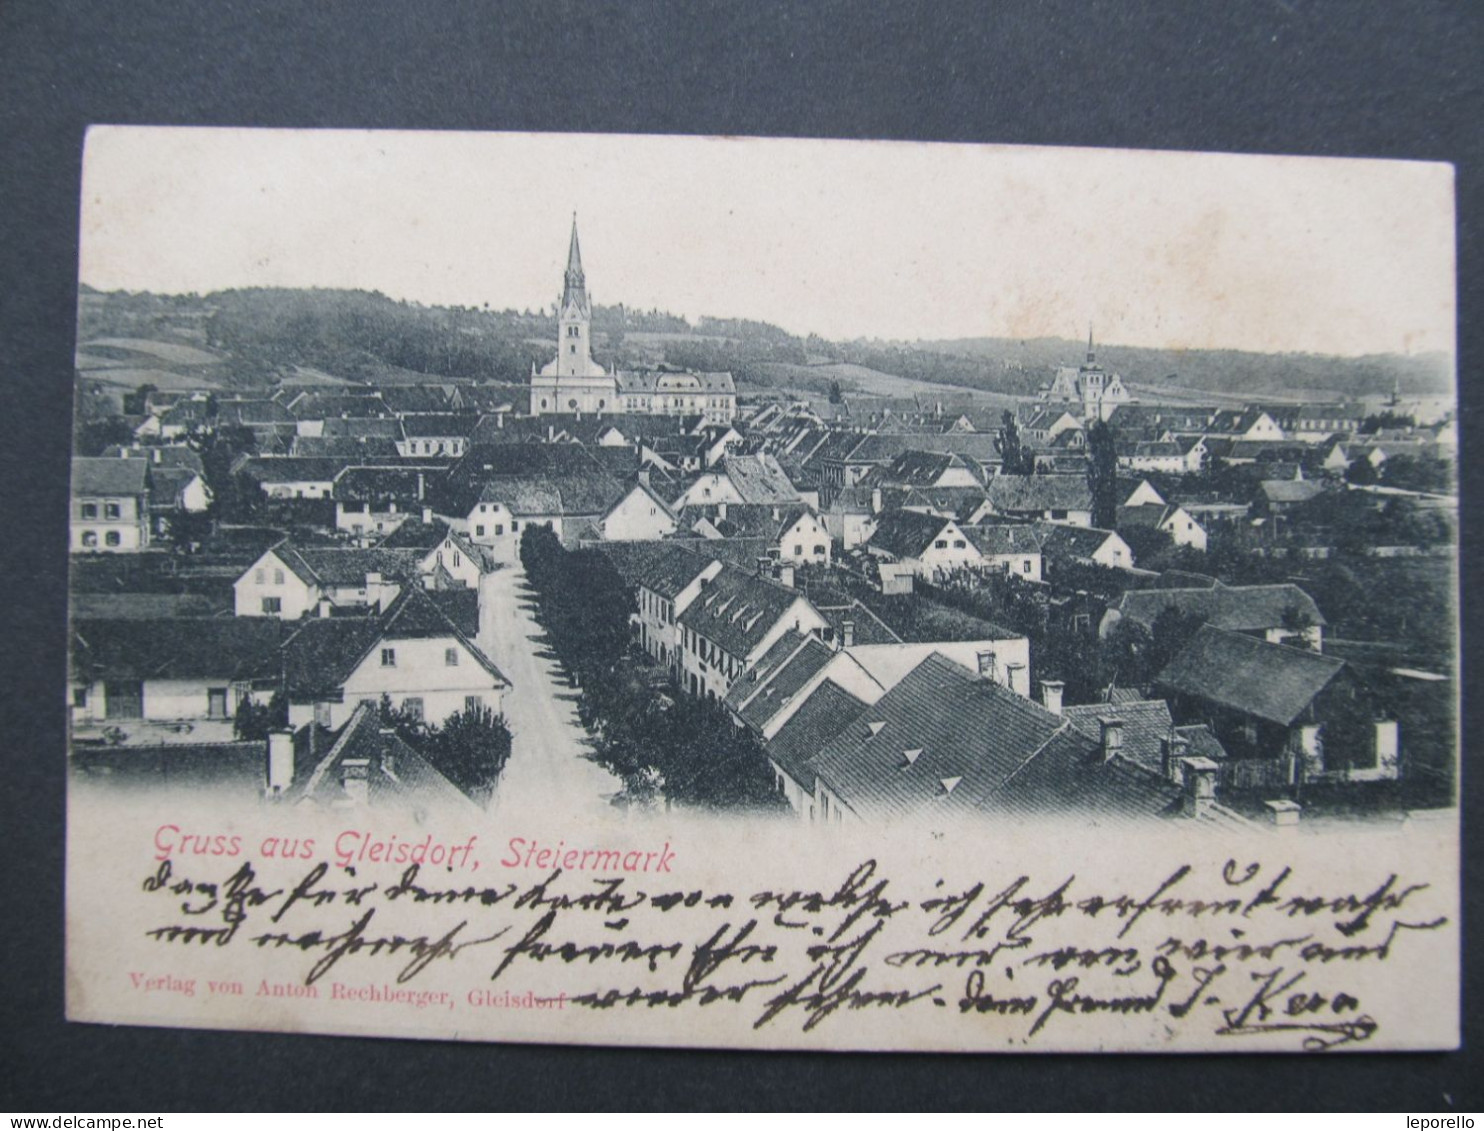 Gruss aus Gleisdorf, Steiermark
danke für deine Karte von welche ich sehr erfreut war
und noch mehr freuen ich mir wen wier
Verlag von Anton Rechberger, Gleisdorf
wieder sehen. dein Freund J. Kern
www.delcampe.net
leporello